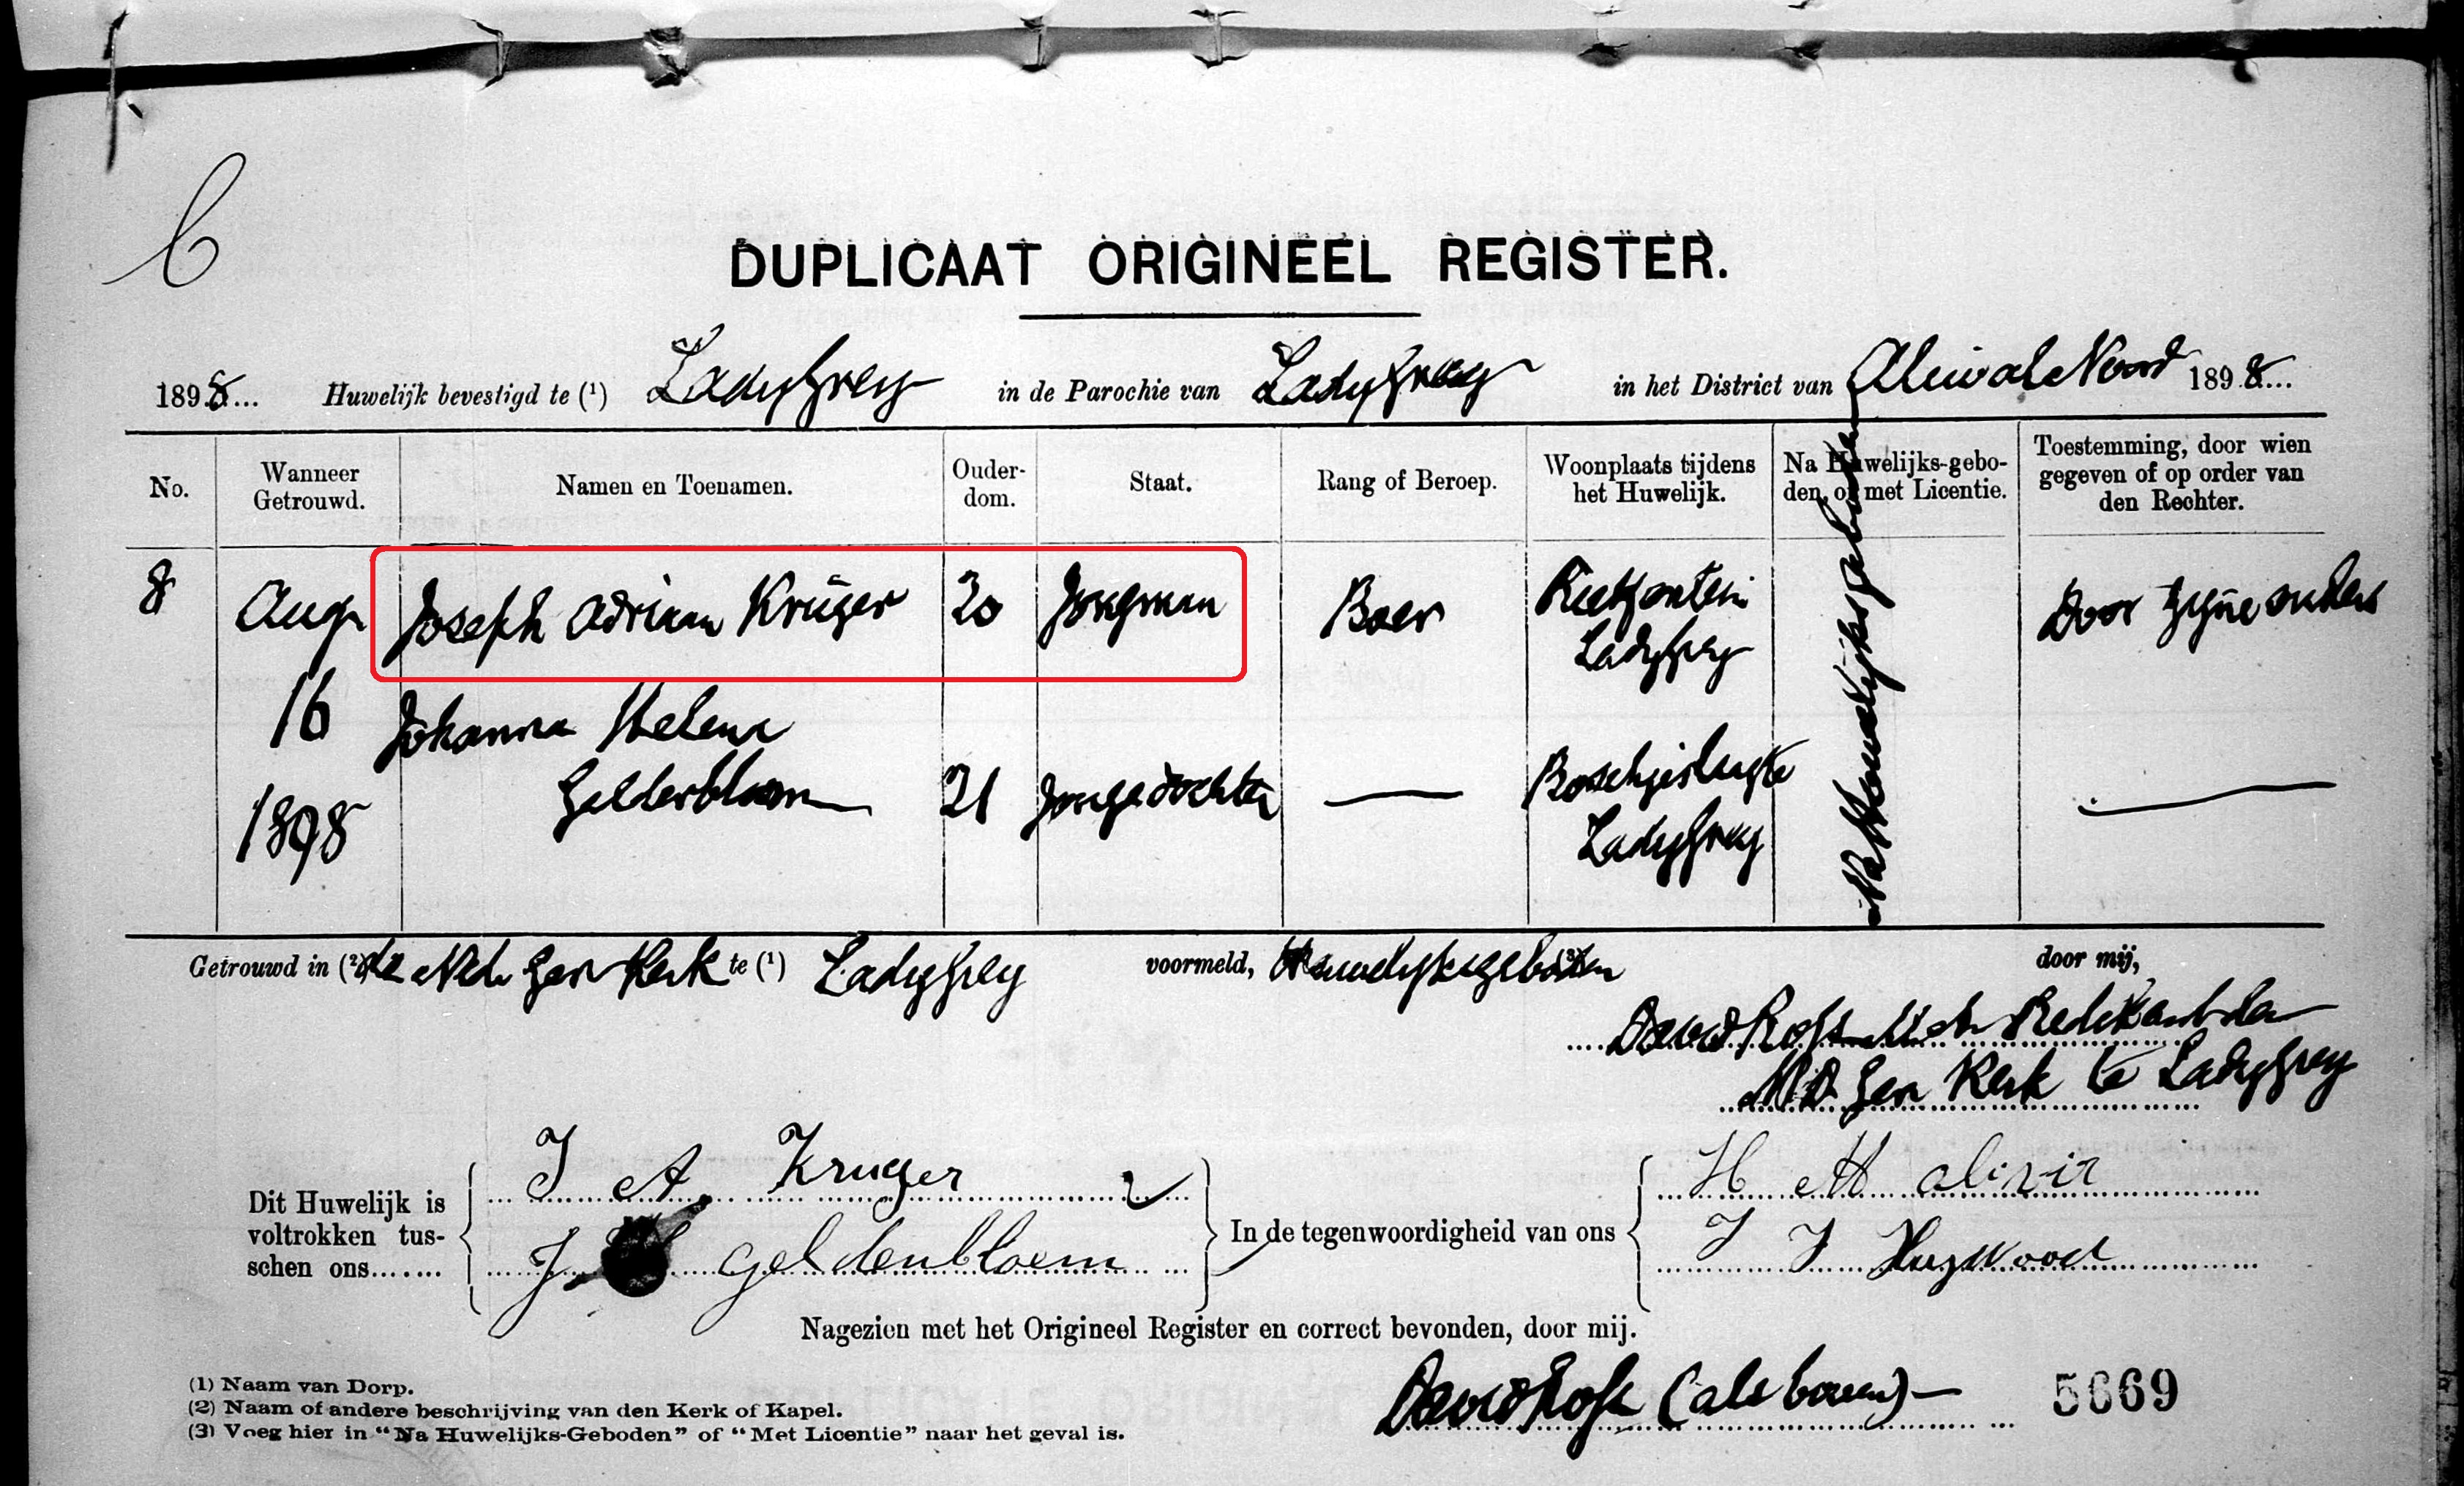 C
DUPLICAAT ORIGINEEL REGISTER.
1898... Huwelijk bevestigd te (1) Lady Grey in de Parochie van Lady Grey in het District van Aliwal Noord 1898...
No. Wanneer Getrouwd. Namen en Toenamen. Ouder-dom. Staat. Rang of Beroep. Woonplaats tijdens het Huwelijk. Na Huwelijks-gebo-den, of met Licentie. Toestemming, door wien gegeven of op order van den Rechter.
8 Aug Joseph Adriaan Krüger 20 Jongman Boer Rietfontein Door zijne ouders
Lady Grey
16 Johanna Helena
Gelderbloem 21 Jongedochter —
1898 Lady Grey
Na Huwelijksgeboden
Getrouwd in (2) de Ned Ger Kerk te (1) Lady Grey voormeld, Huwelijksgeboden door mij,
David Ross Predikant der
Ned Ger Kerk te Lady Grey
Dit Huwelijk is voltrokken tus-schen ons.......
J A Kruger
J geldenbloem
In de tegenwoordigheid van ons
H M olivir
J J
Nagezien met het Origineel Register en correct bevonden, door mij.
David Ross (als boven)
5669
(1) Naam van Dorp.
(2) Naam of andere beschrijving van den Kerk of Kapel.
(3) Voeg hier in “Na Huwelijks-Geboden” of “Met Licentie” naar het geval is.